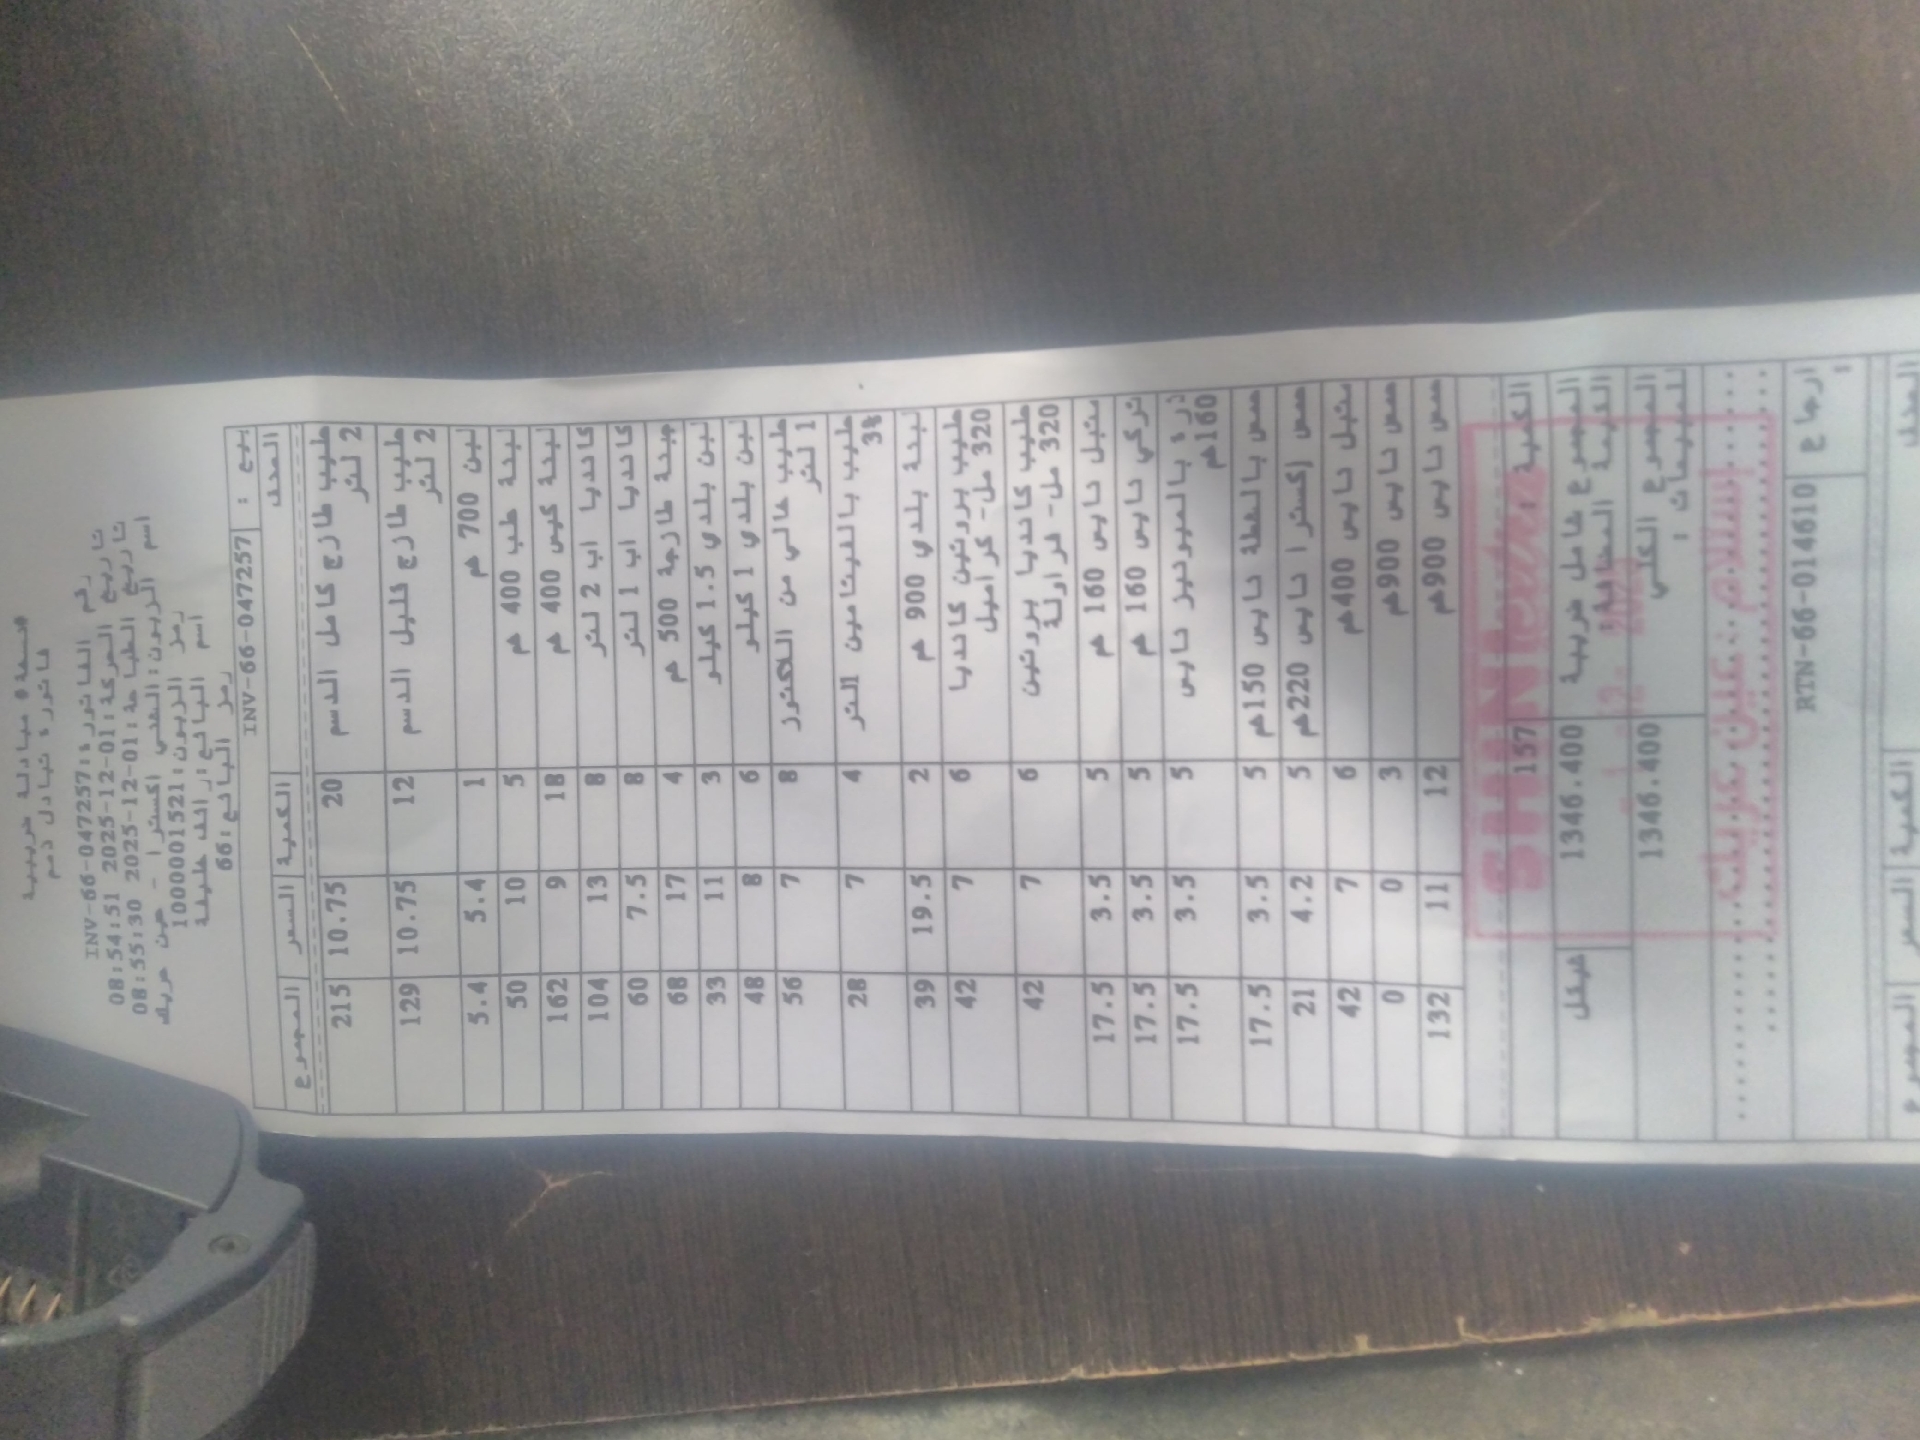 نسخة مبادلة ضريبية
فاتورة تبادل ذمم
رقم الفاتورة: INV-66-047257
تاريخ الحركة: 2025-12-01 08:54:51
تاريخ الطباعة: 2025-12-01 08:55:30
اسم الزبون: العدني اكسترا - عين عريك
رمز الزبون: 1000001521
اسم البائع: رائف خليفة
رمز البائع: 66
بيع : INV-66-047257
الصنف الكمية السعر المجموع
حليب طازج كامل الدسم 2 لتر 20 10.75 215
حليب طازج قليل الدسم 2 لتر 12 10.75 129
لبن 700 غم 1 5.4 5.4
لبنة علب 400 غم 5 10 50
لبنة كيس 400 غم 18 9 162
كانديا اب 2 لتر 8 13 104
كانديا اب 1 لتر 8 7.5 60
جبنة طازجة 500 غم 4 17 68
لبن بلدي 1.5 كيلو 3 11 33
لبن بلدي 1 كيلو 6 8 48
حليب خالي من اللاكتوز 1 لتر 8 7 56
حليب بالفيتامين التر 3% 4 7 28
لبنة بلدي 900 غم 2 19.5 39
حليب بروتين كانديا 320 مل- كراميل 6 7 42
حليب كانديا بروتين 320 مل- فراولة 6 7 42
متبل نايس 160 غم 5 3.5 17.5
تركي نايس 160 غم 5 3.5 17.5
ذرة بالميونيز نايس 160غم 5 3.5 17.5
حمص بالغطة نايس 150غم 5 3.5 17.5
حمص إكسترا نايس 220غم 5 4.2 21
متبل نايس 400غم 6 7 42
حمص نايس 900غم 3 0 0
حمص نايس 900غم 12 11 132
الكمية : 157
المجموع شامل ضريبة القيمة المضافة 1346.400 شيكل
المجموع الكلي للمبيعات : 1346.400
إستلام عين عريك
ارجاع : RTN-66-014610
الصنف الكمية السعر المجموع